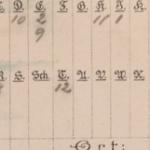 D. E. F. G. H. I. K.
10 2 11 1
9
R. S. Sch. T. U. V. W. X.
12
Ort: